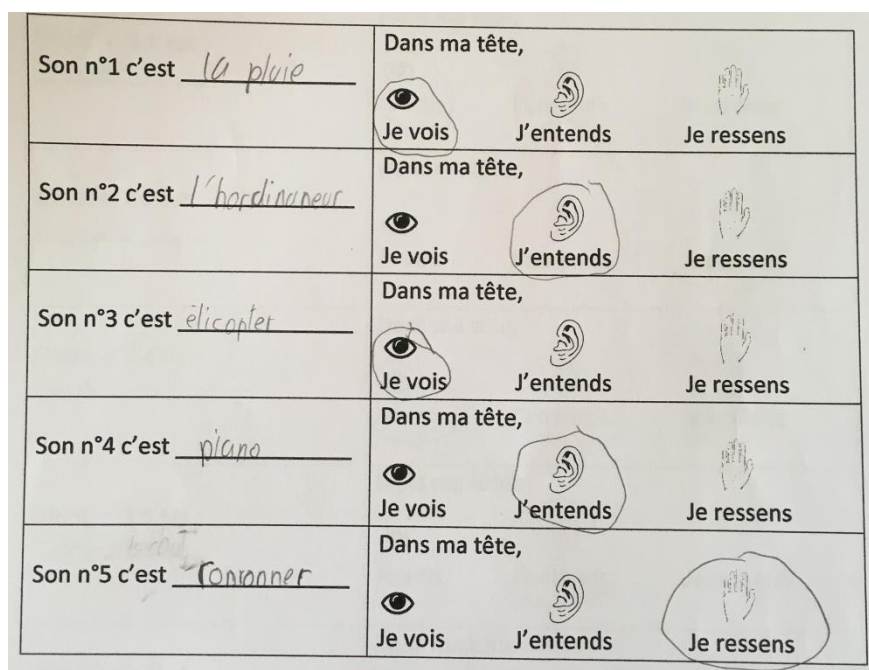 Son n°1 c'est la pluie
Dans ma tête,
Je vois J'entends Je ressens
Son n°2 c'est l'hordinaneur
Dans ma tête,
Je vois J'entends Je ressens
Son n°3 c'est élicopter
Dans ma tête,
Je vois J'entends Je ressens
Son n°4 c'est piano
Dans ma tête,
Je vois J'entends Je ressens
Son n°5 c'est ronronner
Dans ma tête,
Je vois J'entends Je ressens